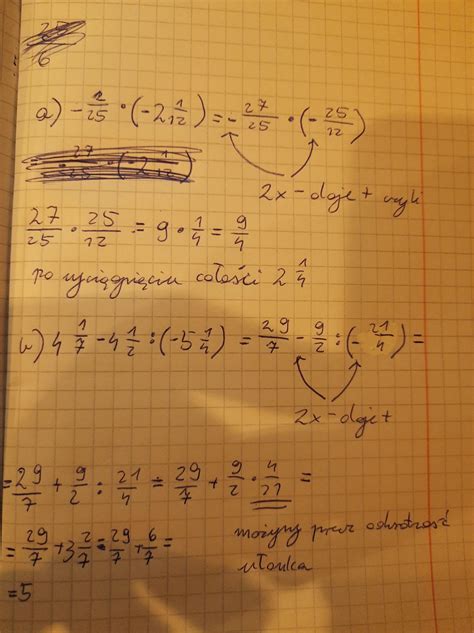 6
a) - 2/25 · (-2 1/12) = - 27/25 · (- 25/12)
2x - daje + czyli
27/25 · 25/12 = 9 · 1/4 = 9/4
po wyciągnięciu całości 2 1/4
b) 4 1/7 - 4 1/2 : (-5 1/4) = 29/7 - 9/2 : (- 21/4) =
2x - daje +
= 29/7 + 9/2 : 21/4 = 29/7 + 9/2 · 4/21 =
mnożymy przez odwrotność
ułamka
= 29/7 + 3 · 2/7 = 29/7 + 6/7 =
= 5